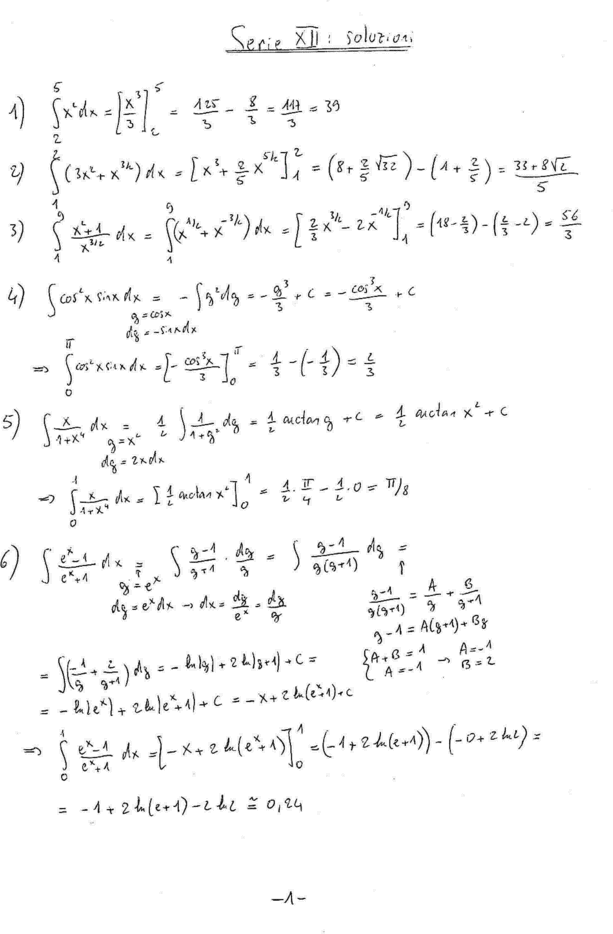 Serie XII: soluzioni
1) ∫₂⁵ x² dx = [x³/3]₂⁵ = 125/3 - 8/3 = 117/3 = 39
2) ∫₁² (3x² + x^(3/2)) dx = [x³ + 2/5 x^(5/2)]₁² = (8 + 2/5 √32) - (1 + 2/5) = (33 + 8√2)/5
3) ∫₁⁹ (x²+1)/x^(3/2) dx = ∫₁⁹ (x^(1/2) + x^(-3/2)) dx = [2/3 x^(3/2) - 2x^(-1/2)]₁⁹ = (18 - 2/3) - (2/3 - 2) = 56/3
4) ∫ cos²x sinx dx = - ∫ g² dg = - g³/3 + C = - cos³x/3 + C
g = cosx
dg = -sinx dx
⇒ ∫₀^π cos²x sinx dx = [- cos³x/3]₀^π = 1/3 - (-1/3) = 2/3
5) ∫ x/(1+x⁴) dx = 1/2 ∫ 1/(1+g²) dg = 1/2 arctan g + C = 1/2 arctan x² + C
g = x²
dg = 2x dx
⇒ ∫₀¹ x/(1+x⁴) dx = [1/2 arctan x²]₀¹ = 1/2 · π/4 - 1/2 · 0 = π/8
6) ∫ (eˣ-1)/(eˣ+1) dx = ∫ (g-1)/(g+1) · dg/g = ∫ (g-1)/(g(g+1)) dg =
↑ ↑
g = eˣ
dg = eˣ dx → dx = dg/eˣ = dg/g
(g-1)/(g(g+1)) = A/g + B/(g+1)
g-1 = A(g+1) + Bg
{ A+B = 1 → A = -1
A = -1 B = 2
= ∫ (-1/g + 2/(g+1)) dg = - ln|g| + 2 ln|g+1| + C =
= - ln|eˣ| + 2 ln|eˣ+1| + C = -x + 2 ln(eˣ+1) + C
⇒ ∫₀¹ (eˣ-1)/(eˣ+1) dx = [-x + 2 ln(eˣ+1)]₀¹ = (-1 + 2 ln(e+1)) - (-0 + 2 ln2) =
= -1 + 2 ln(e+1) - 2 ln2 ≅ 0,24
-1-